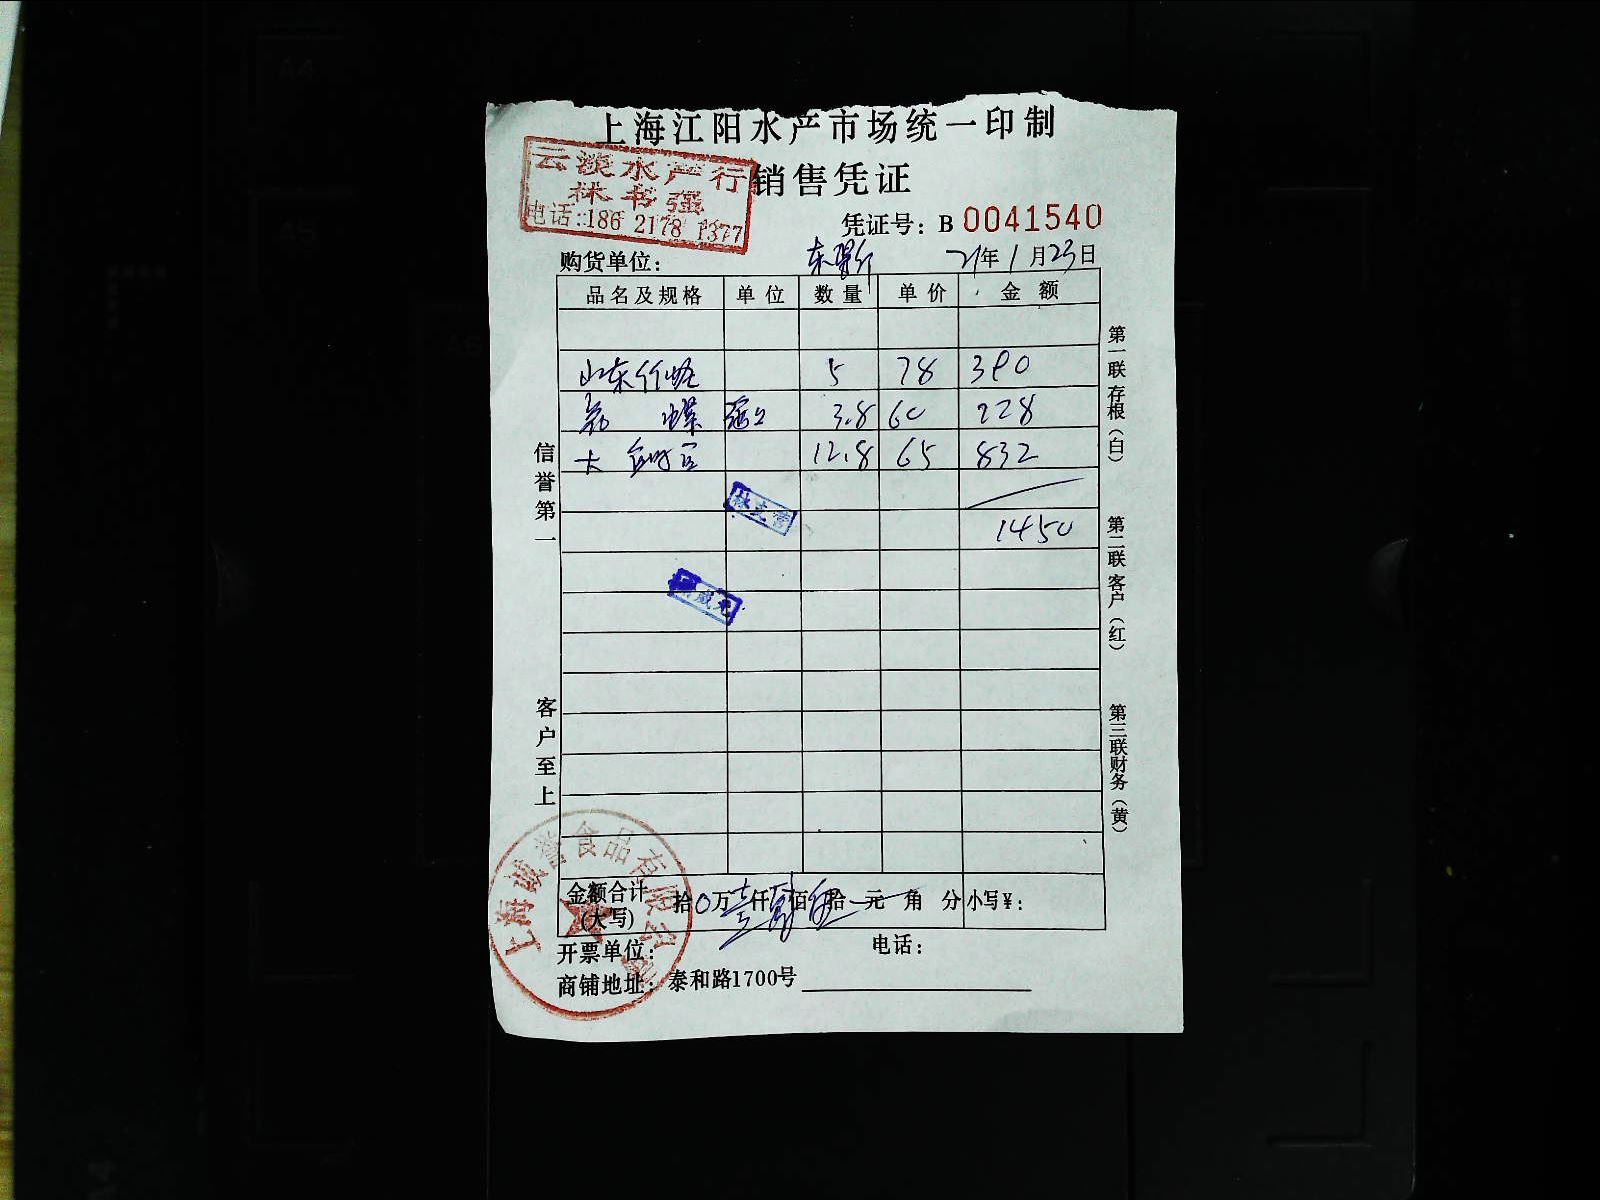 上海江阳水产市场统一印制
云淡水产行
林书强
电话:186 2178 1377
销售凭证
凭证号: B 0041540
购货单位: 21年1月23日
品名及规格 单位 数量 单价 金额
山东竹蛏 5 78 390
花 螺 3.8 60 228
大 12.8 65 832
1450
信誉第一
客户至上
第一联存根(白)
第二联客户(红)
第三联财务(黄)
上海诚誉食品有限公司
金额合计(大写) 拾0万壹仟肆佰伍拾元角分 小写¥:
开票单位: 电话:
商铺地址: 泰和路1700号